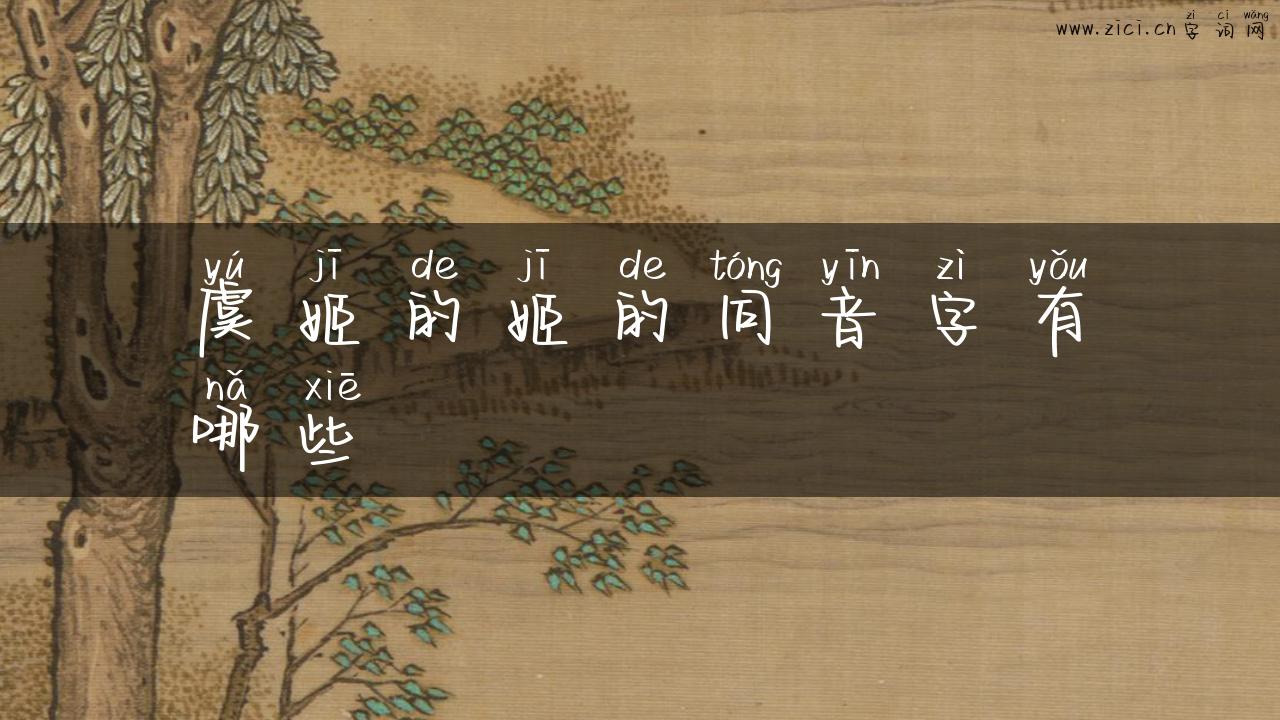 zì cí wǎng
www.zici.cn 字词网
yú jī de jī de tóng yīn zì yǒu
虞姬的姬的同音字有
nǎ xiē
哪些